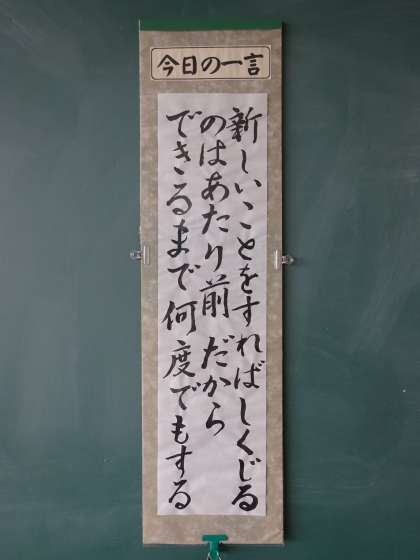 今日の一言
新しいことをすればしくじる
のはあたり前だから
できるまで何度でもする